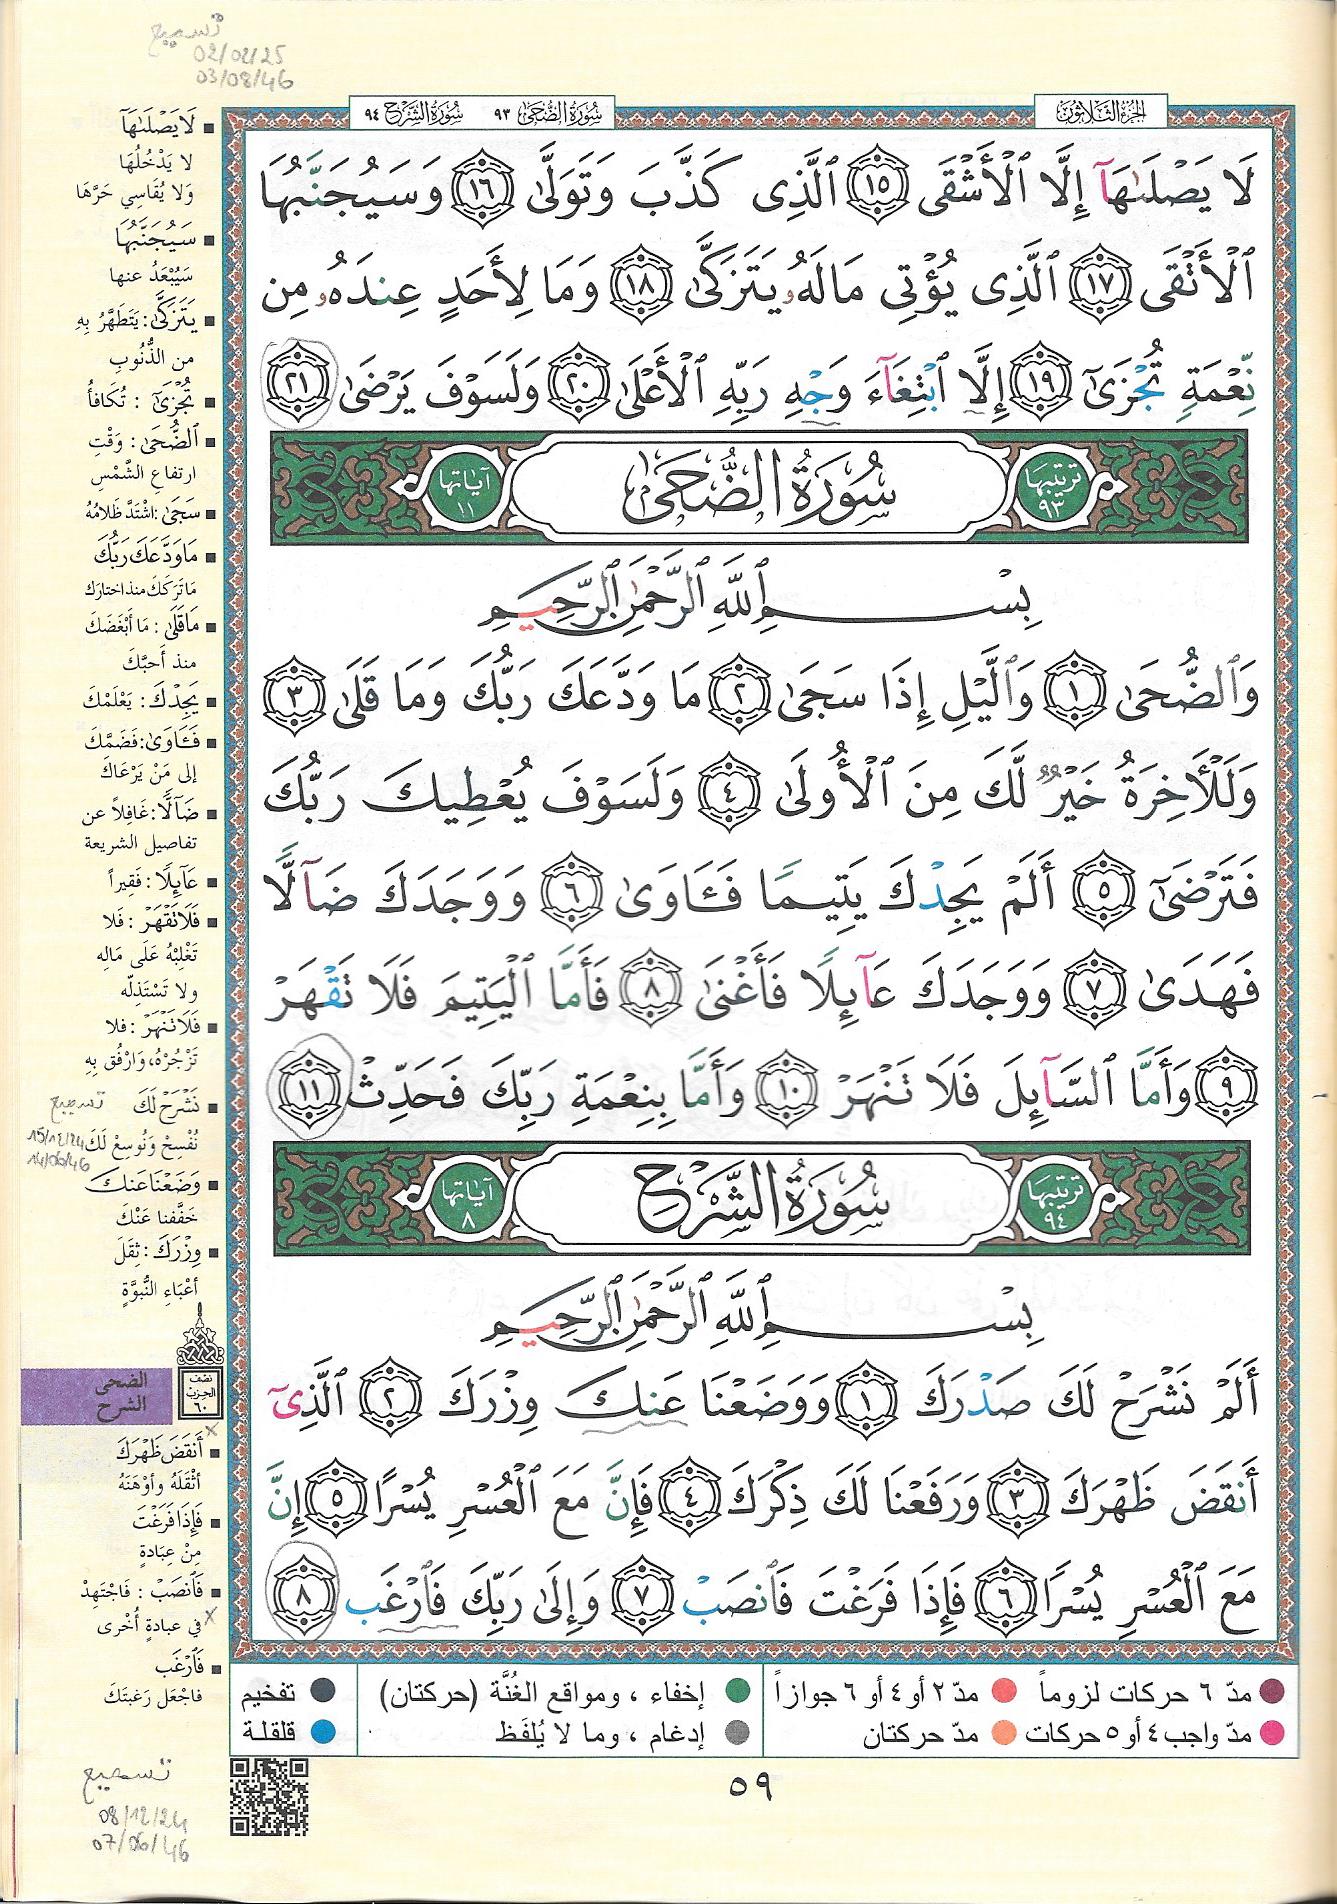 تسميع
02/02/25
03/08/46
الجزء الثلاثون
سُورَةُ الضُّحَىٰ ٩٣ سُورَةُ الشَّرْح ٩٤
لَا يَصْلَىٰهَآ إِلَّا ٱلْأَشْقَى ١٥ ٱلَّذِى كَذَّبَ وَتَوَلَّىٰ ١٦ وَسَيُجَنَّبُهَا
ٱلْأَتْقَى ١٧ ٱلَّذِى يُؤْتِى مَالَهُۥ يَتَزَكَّىٰ ١٨ وَمَا لِأَحَدٍ عِندَهُۥ مِن
نِّعْمَةٍ تُجْزَىٰٓ ١٩ إِلَّا ٱبْتِغَآءَ وَجْهِ رَبِّهِ ٱلْأَعْلَىٰ ٢٠ وَلَسَوْفَ يَرْضَىٰ ٢١
ترتيبها ٩٣ سُورَةُ الضُّحَىٰ آياتها ١١
بِسْمِ ٱللَّهِ ٱلرَّحْمَٰنِ ٱلرَّحِيمِ
وَٱلضُّحَىٰ ١ وَٱلَّيْلِ إِذَا سَجَىٰ ٢ مَا وَدَّعَكَ رَبُّكَ وَمَا قَلَىٰ ٣
وَلَلْأَخِرَةُ خَيْرٌ لَّكَ مِنَ ٱلْأُولَىٰ ٤ وَلَسَوْفَ يُعْطِيكَ رَبُّكَ
فَتَرْضَىٰٓ ٥ أَلَمْ يَجِدْكَ يَتِيمًا فَـَٔاوَىٰ ٦ وَوَجَدَكَ ضَآلًّا
فَهَدَىٰ ٧ وَوَجَدَكَ عَآئِلًا فَأَغْنَىٰ ٨ فَأَمَّا ٱلْيَتِيمَ فَلَا تَقْهَرْ
٩ وَأَمَّا ٱلسَّآئِلَ فَلَا تَنْهَرْ ١٠ وَأَمَّا بِنِعْمَةِ رَبِّكَ فَحَدِّثْ ١١
ترتيبها ٩٤ سُورَةُ الشَّرْح آياتها ٨
بِسْمِ ٱللَّهِ ٱلرَّحْمَٰنِ ٱلرَّحِيمِ
أَلَمْ نَشْرَحْ لَكَ صَدْرَكَ ١ وَوَضَعْنَا عَنكَ وِزْرَكَ ٢ ٱلَّذِىٓ
أَنقَضَ ظَهْرَكَ ٣ وَرَفَعْنَا لَكَ ذِكْرَكَ ٤ فَإِنَّ مَعَ ٱلْعُسْرِ يُسْرًا ٥ إِنَّ
مَعَ ٱلْعُسْرِ يُسْرًا ٦ فَإِذَا فَرَغْتَ فَٱنصَبْ ٧ وَإِلَىٰ رَبِّكَ فَٱرْغَب ٨
لَا يَصْلَىٰهَآ
لا يَدْخُلُهَا
وَلا يُقَاسِي حَرَّهَا
سَيُجَنَّبُهَا
سَيُبْعَدُ عنها
يَتَزَكَّىٰ: يَتَطَهَّرُ بِهِ
من الذُّنُوبِ
تُجْزَىٰٓ : تُكَافَأُ
ٱلضُّحَىٰ : وَقْتِ
ارتفاعِ الشَّمْسِ
سَجَىٰ : اشْتَدَّ ظَلَامُهُ
مَا وَدَّعَكَ رَبُّكَ
مَا تَرَكَكَ منذ اختارك
مَا قَلَىٰ : مَا أَبْغَضَكَ
منذ أَحبَّكَ
يَجِدْكَ: يَعْلَمْكَ
فَـَٔاوَىٰ: فَضَمَّكَ
إلى مَنْ يَرْعَاكَ
ضَآلًّا: غَافِلاً عن
تفاصيل الشريعة
عَآئِلًا : فَقِيراً
فَلَا تَقْهَرْ : فَلا
تَغْلِبْهُ عَلَى مَالِهِ
ولا تَسْتَذِلَّه
فَلَا تَنْهَرْ : فلا
تَزْجُرْهُ، وَارْفُق بِهِ
نَشْرَحْ لَكَ
تسميع
نُفْسِحْ وَنُوسِعْ لَكَ
15/12/24
14/06/46
وَضَعْنَا عَنكَ
خَفَّفنا عَنْكَ
وِزْرَكَ : ثِقَلَ
أعْبَاءِ النُّبوَّةِ
نصف الحزب ٦٠
الضحى
الشرح
أَنقَضَ ظَهْرَكَ
أثْقَلَهُ وأوْهَنَهُ
فَإِذَا فَرَغْتَ
مِنْ عِبَادَةٍ
فَٱنصَبْ : فَاجْتَهِدْ
في عبادةٍ أُخْرى
فَٱرْغَب
فاجْعَل رَغبتَكَ
مدّ ٦ حركات لزوماً مدّ ٢ أو ٤ أو ٦ جوازاً إخفاء ، ومواقع الغُنَّة (حركتان) تفخيم
مدّ واجب ٤ أو ٥ حركات مدّ حركتان إدغام ، وما لا يُلفَظ قلقلة
٥٩
تسميع
08/12/24
07/06/46